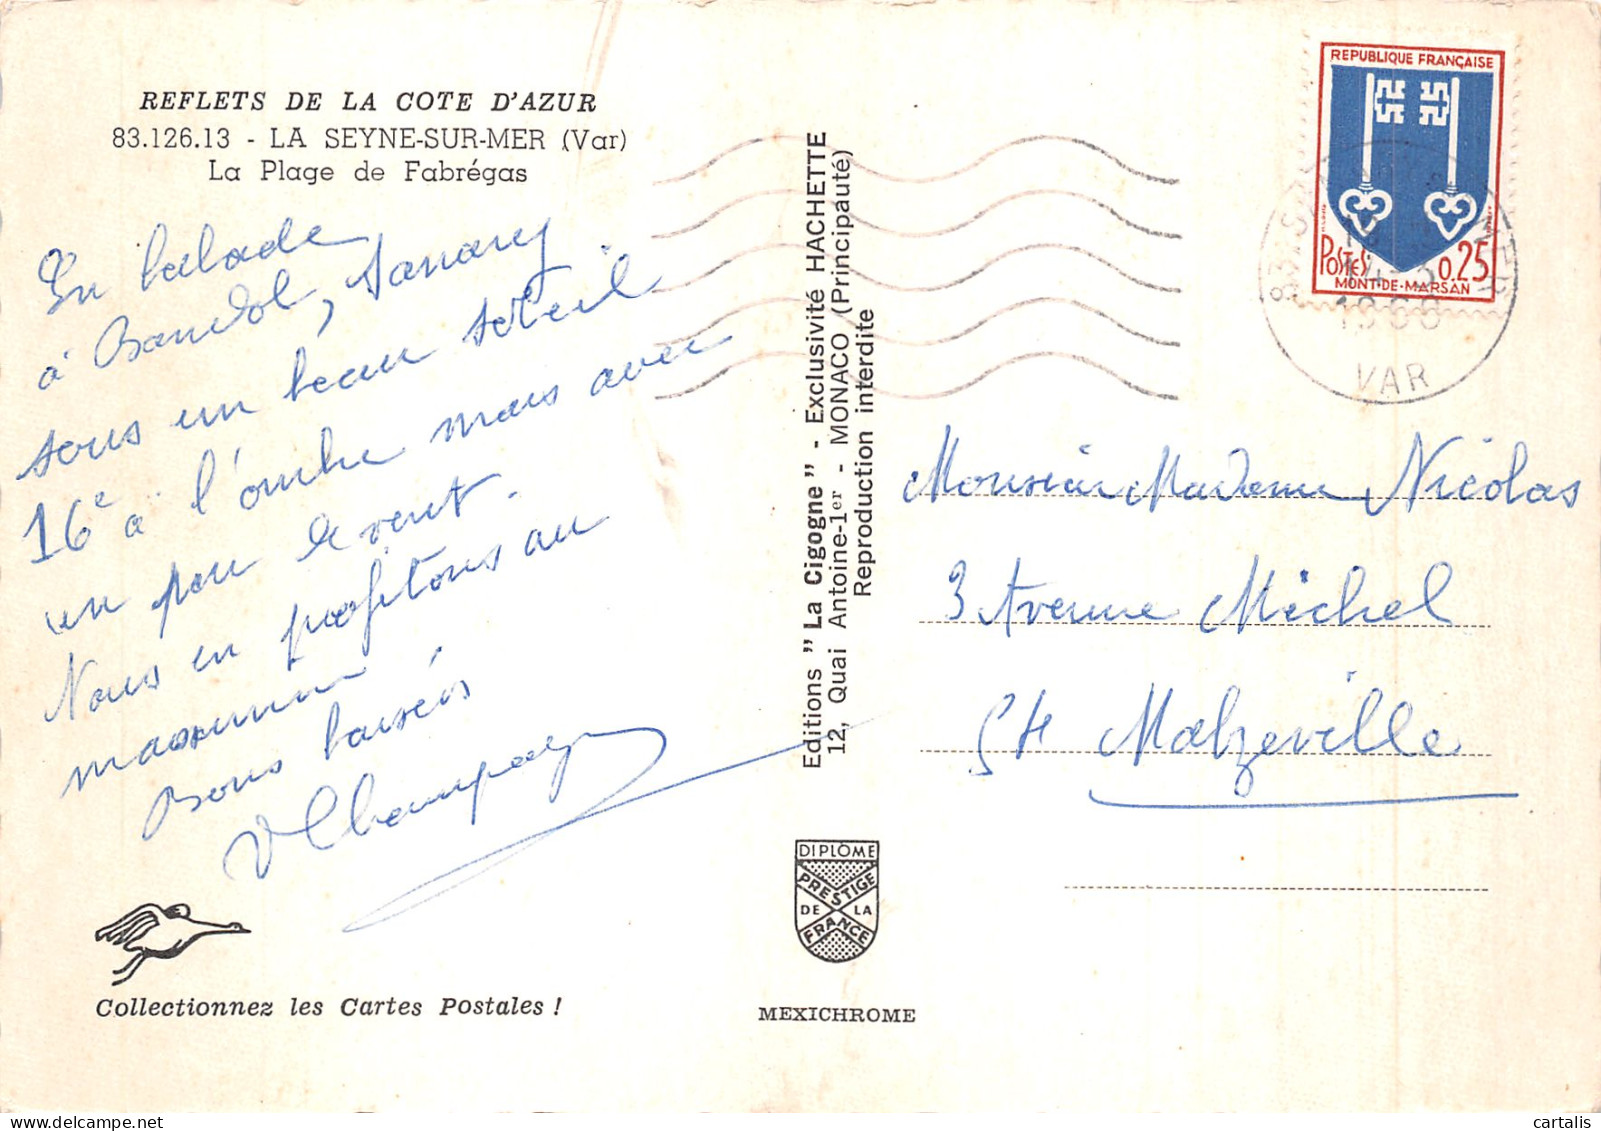 REFLETS DE LA COTE D'AZUR
83.126.13 - LA SEYNE-SUR-MER (Var)
La Plage de Fabrégas
En balade
à Bandol, Sanary
sous un beau soleil
16° à l'ombre mais avec
un peu de vent.
Nous en profitons au
maximum
Bons baisers
Champagn
Collectionnez les Cartes Postales !
Editions "La Cigogne" - Exclusivité HACHETTE
12, Quai Antoine-1er - MONACO (Principauté)
Reproduction interdite
DIPLÔME
PRESTIGE
DE LA
FRANCE
MEXICHROME
REPUBLIQUE FRANÇAISE
POSTES 0,25
MONT-DE-MARSAN
VAR
Monsieur Madame Nicolas
3 Avenue Michel
54 Malzeville
cartalis